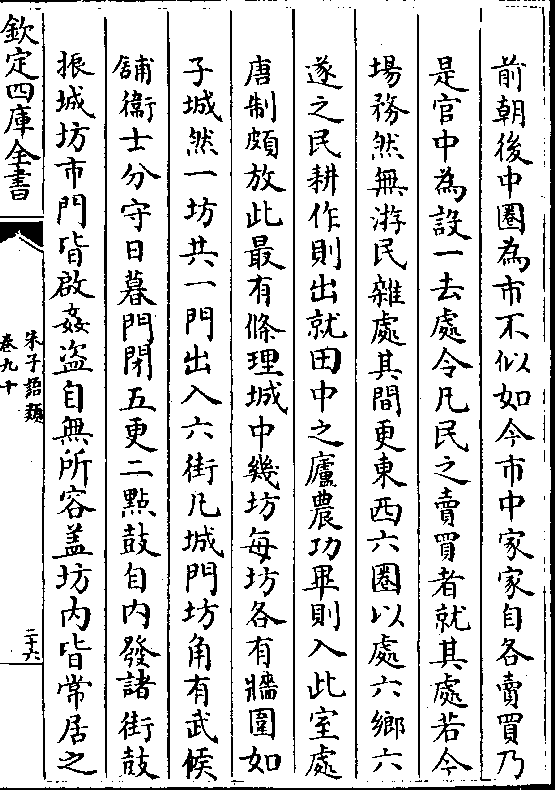 前朝後中圈為市不似如今市中家家自各賣買乃
是官中為設一去處令凡民之賣買者就其處若今
場務然無游民雜處其間更東西六圈以處六鄉六
遂之民耕作則出就田中之廬農功畢則入此室處
唐制頗放此最有條理城中幾坊每坊各有牆圍如
子城然一坊共一門出入六街凡城門坊角有武候
鋪衞士分守日暮門閉五更二點鼓自內發諸街鼓
振城坊市門皆啟姦盜自無所容盖坊內皆常居之
欽定四庫全書
朱子語類
卷九十
二十六